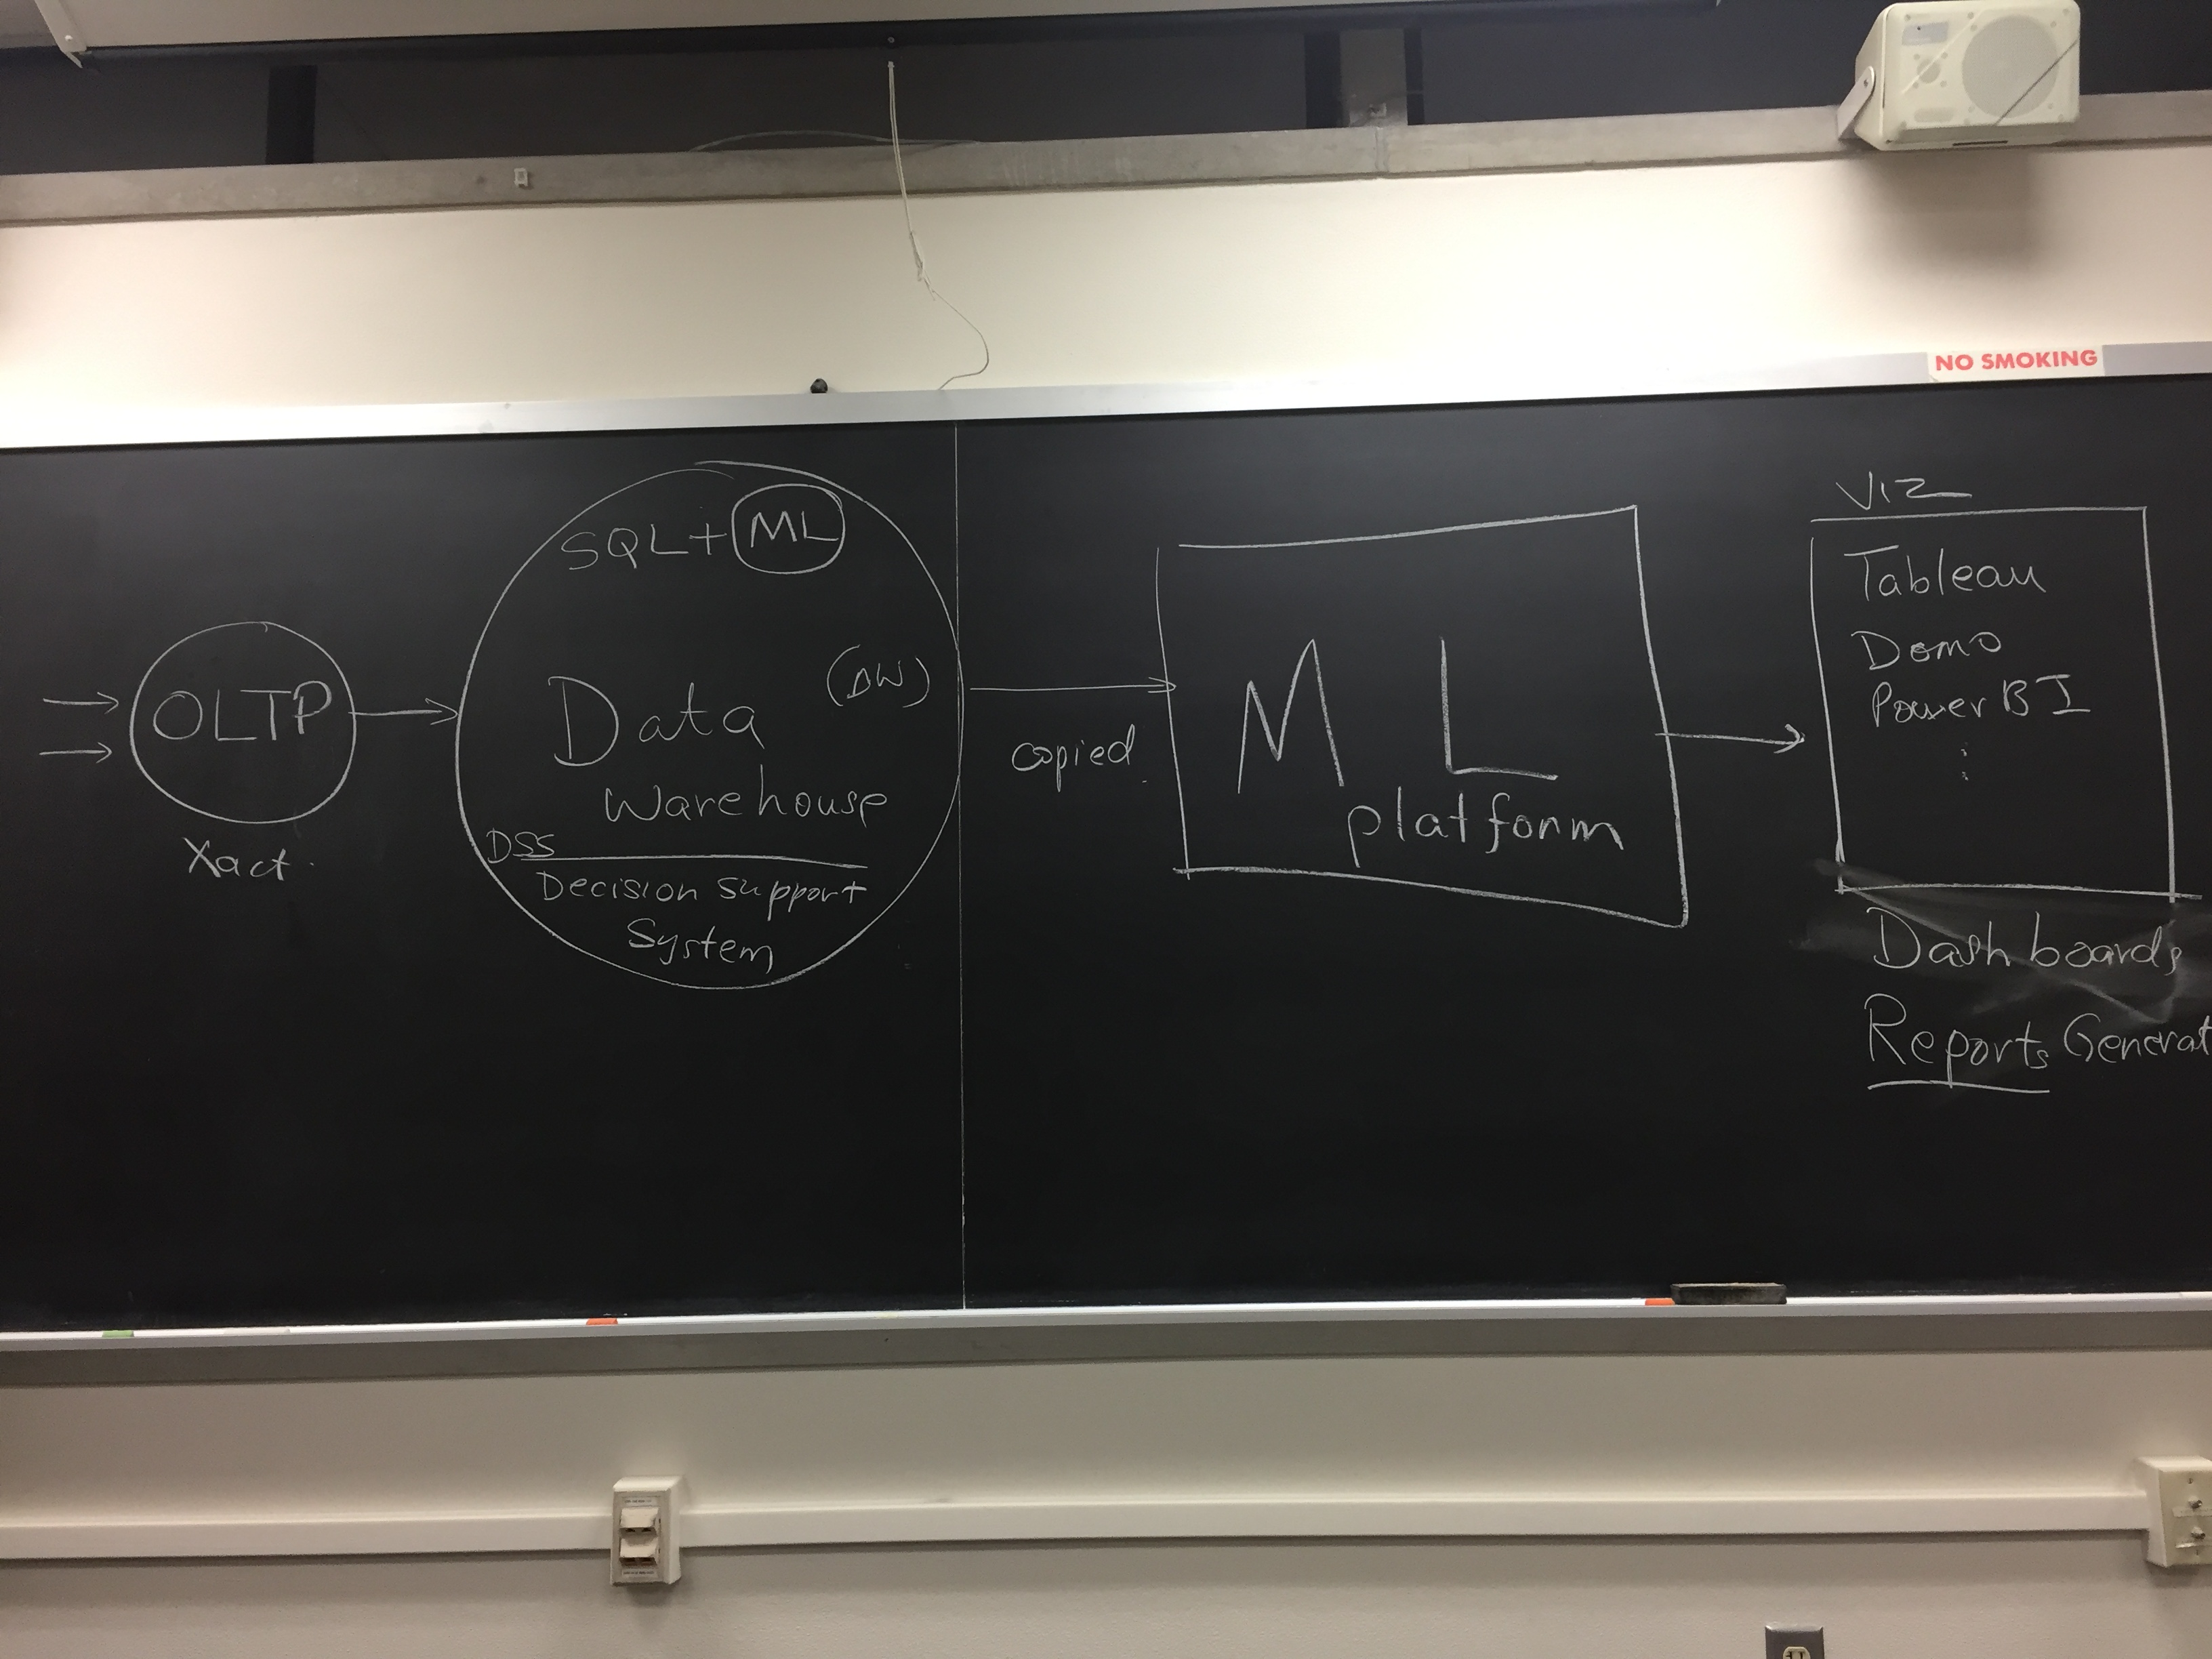 NO SMOKING
OLTP
Xact.
SQL + ML
Data (DW)
Warehouse
DSS
Decision support
System
copied
ML
platform
VIZ
Tableau
Domo
Power BI
⋮
Dashboards
Reports Generat